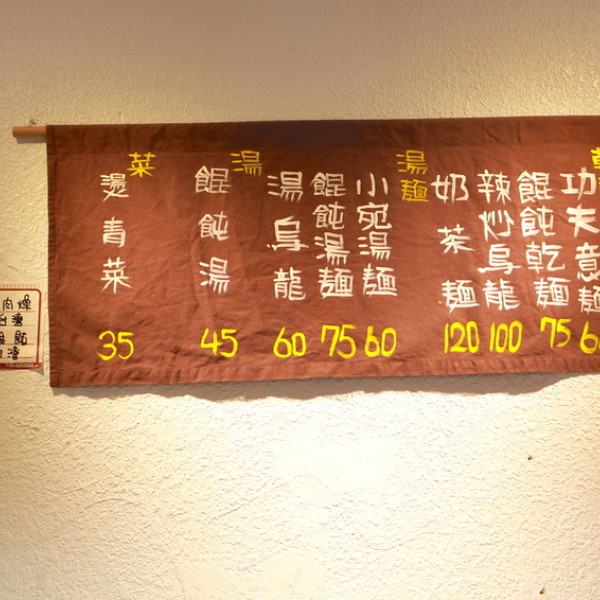 功夫意麵
餛飩乾麵
75
辣炒烏龍
100
奶茶麵
120
湯麵
小宛湯麵
60
餛飩湯麵
75
湯烏龍
60
湯
餛飩湯
45
菜
燙青菜
35
肉燥
台灣
台灣